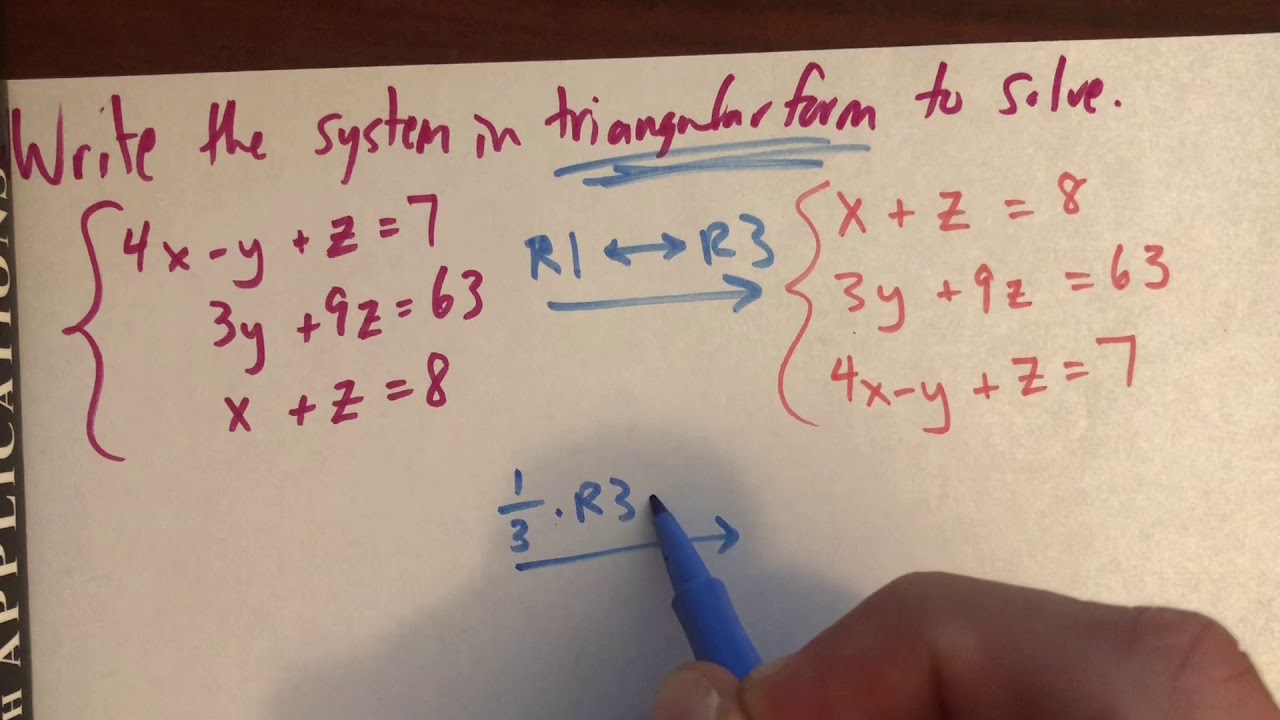 Write the system in triangular form to solve.
4x - y + z = 7
3y + 9z = 63
x + z = 8
R1 ↔ R3
x + z = 8
3y + 9z = 63
4x - y + z = 7
1/3 · R3
H APPLICATIONS